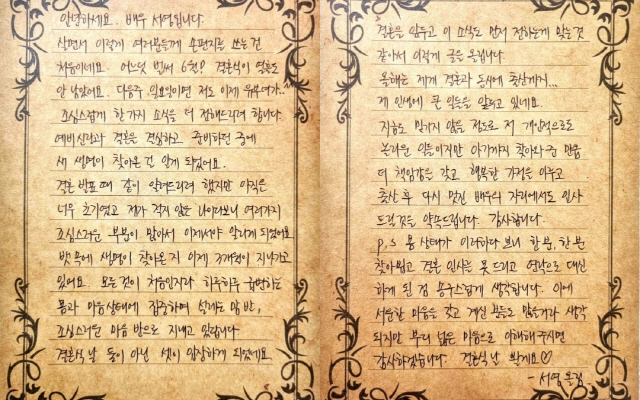 안녕하세요. 배우 서영입니다.
살면서 이렇게 여러분들께 손편지를 쓰는 건
처음이네요. 어느덧 벌써 6월? 결혼식이 얼마
안 남았어요. 다음주 일요일이면 저도 이제 유부녀가..
조심스럽게 한가지 소식을 더 전해드리려 합니다.
예비신랑과 결혼을 결심하고 준비하던 중에
새 생명이 찾아온 걸 알게 되었어요.
결혼 발표 때 같이 알려드리려 했지만 아직은
너무 초기였고 제가 적지 않은 나이다보니 여러가지
조심스러운 부분이 많아서 이제서야 알리게 되었어요
뱃속에 생명이 찾아온지 이제 개월이 지나가고
있어요. 모든 것이 처음인지라 하루하루 급변하는
몸과 마음상태에 집중하며 설레는 맘 반,
조심스러운 마음 반으로 지내고 있답니다.
결혼식날 둘이 아닌 셋이 입장하게 되었네요
결혼을 앞두고 이 소식도 먼저 전하는게 맞는것
같아서 이렇게 글을 올립니다.
올해는 제게 결혼과 동시에 출산까지...
제 인생에 큰 일들을 앞두고 있네요.
지금도 믿기지 않을 정도로 저 개인적으로도
놀라운 일들이지만 아기까지 찾아와 준 만큼
더 책임감을 갖고 행복한 가정을 이루고
출산 후 다시 멋진 배우의 자리에서도 인사
드릴것을 약속드립니다. 감사합니다.
P.S 몸 상태가 이러하다 보니 한분, 한분
찾아뵙고 결혼 인사를 못 드리고 연락으로 대신
하게 된 점 송구스럽게 생각합니다. 이에
서운한 마음을 갖고 계신 분들도 많을거라 생각
되지만 부디 넓은 마음으로 이해해 주시면
감사하겠습니다. 결혼식날 뵐게요♡
- 서영 올림 -